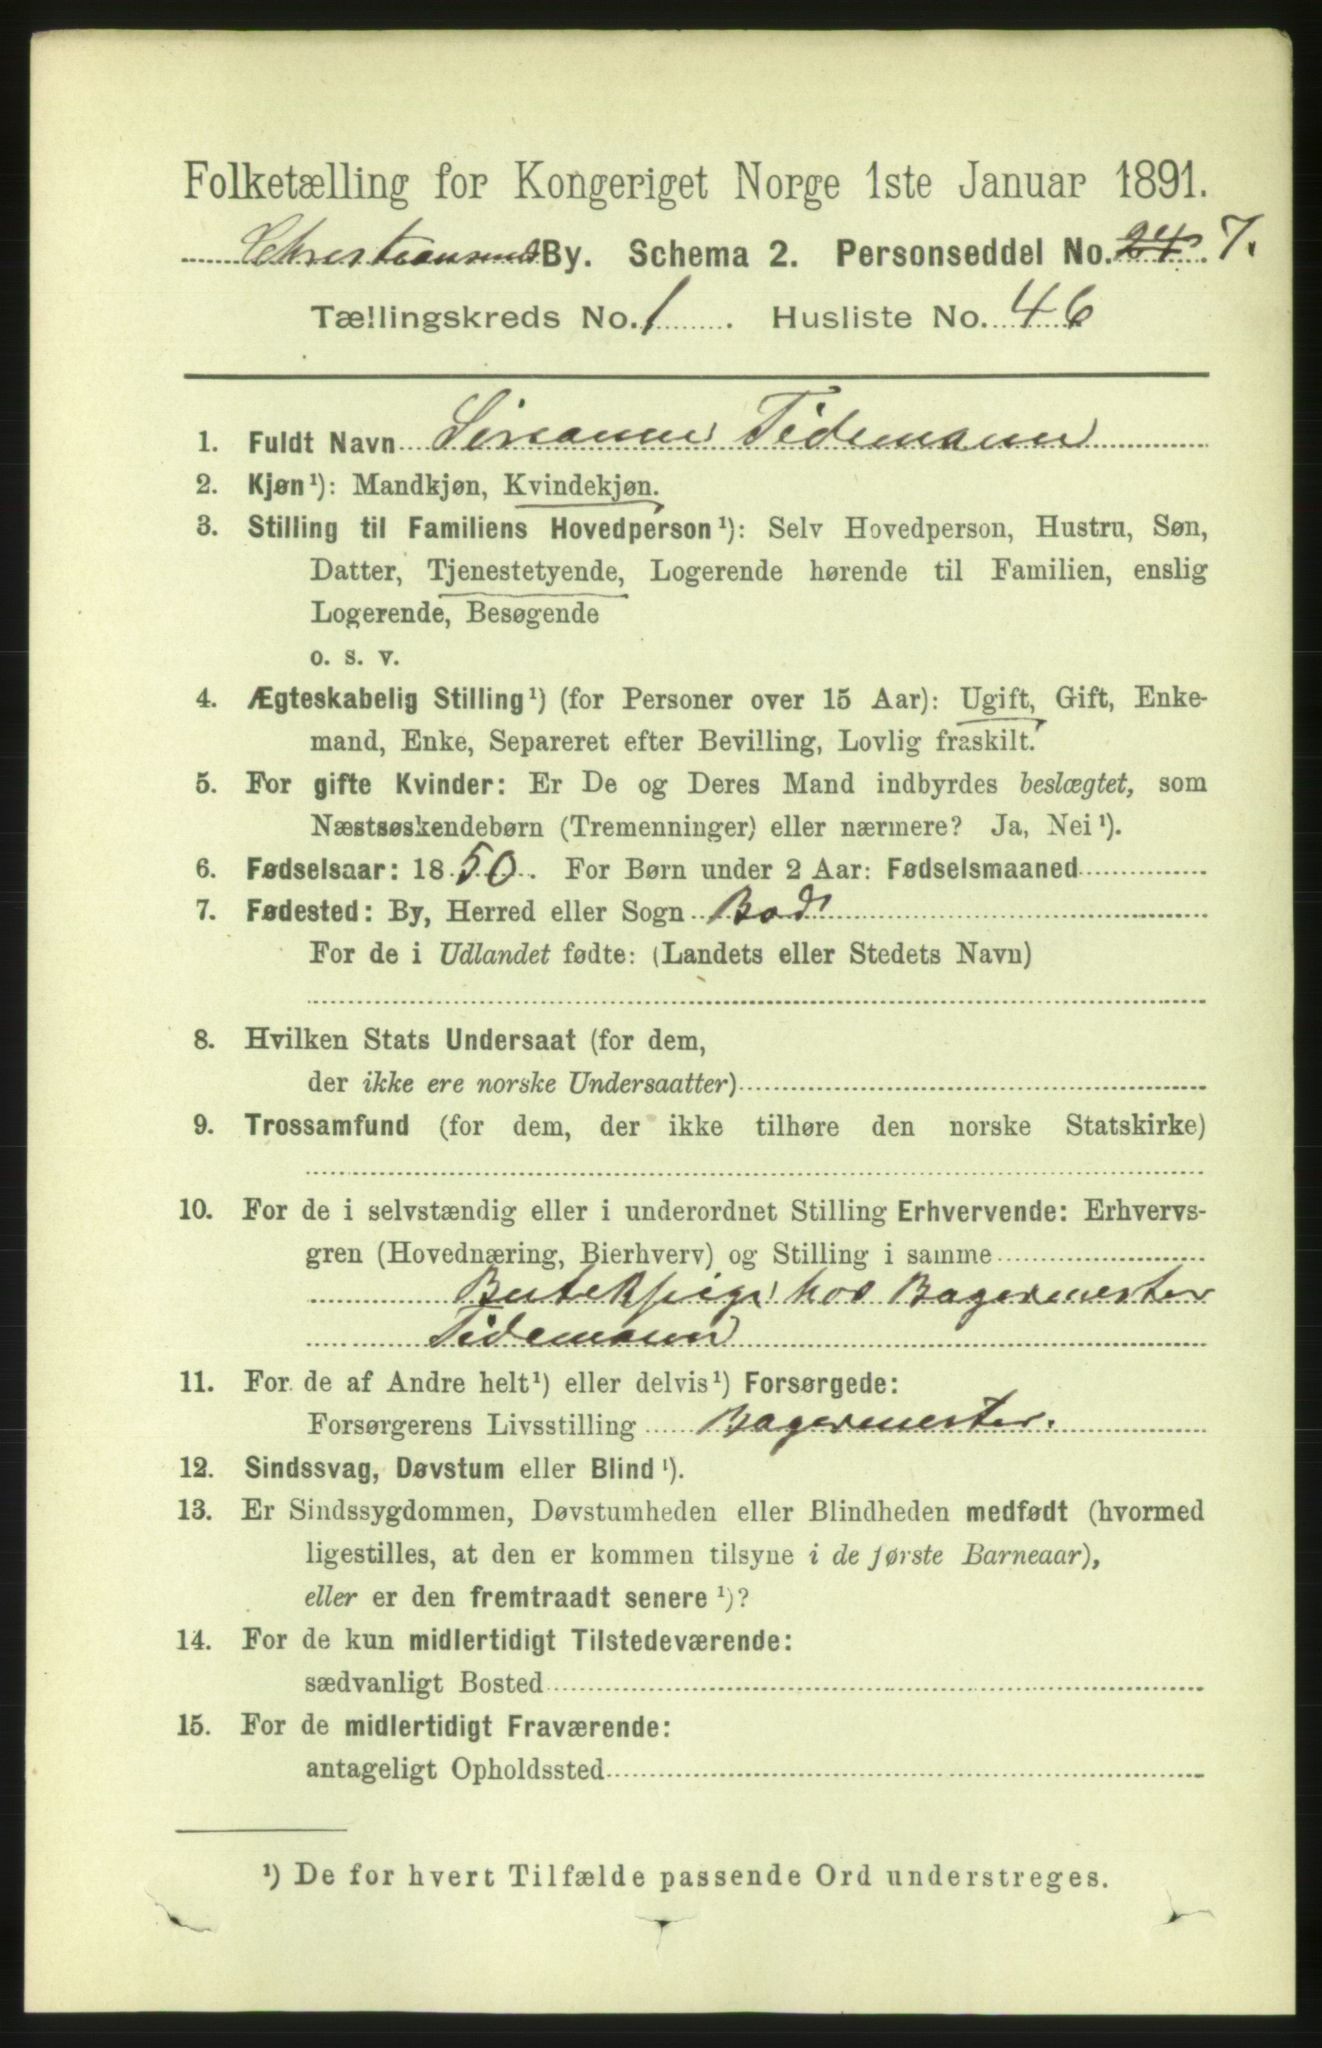 Folketælling for Kongeriget Norge 1ste Januar 1891.
Christianssunds By. Schema 2. Personseddel No. 24. 7.
Tællingskreds No. 1. Husliste No. 46
1. Fuldt Navn Tidemann
2. Kjøn¹): Mandkjøn, Kvindekjøn.
3. Stilling til Familiens Hovedperson¹): Selv Hovedperson, Hustru, Søn,
Datter, Tjenestetyende, Logerende hørende til Familien, enslig
Logerende, Besøgende
o. s. v.
4. Ægteskabelig Stilling¹) (for Personer over 15 Aar): Ugift, Gift, Enke-
mand, Enke, Separeret efter Bevilling, Lovlig fraskilt.
5. For gifte Kvinder: Er De og Deres Mand indbyrdes beslægtet, som
Næstsøskendebørn (Tremenninger) eller nærmere? Ja, Nei¹).
6. Fødselsaar: 1850. For Børn under 2 Aar: Fødselsmaaned
7. Fødested: By, Herred eller Sogn Bod
For de i Udlandet fødte: (Landets eller Stedets Navn)
8. Hvilken Stats Undersaat (for dem,
der ikke ere norske Undersaatter)
9. Trossamfund (for dem, der ikke tilhøre den norske Statskirke)
10. For de i selvstændig eller i underordnet Stilling Erhvervende: Erhvervs-
gren (Hovednæring, Bierhverv) og Stilling i samme
Butekpige hos Bagermester
Tidemann
11. For de af Andre helt¹) eller delvis¹) Forsørgede:
Forsørgerens Livsstilling Bagermester.
12. Sindssvag, Døvstum eller Blind¹).
13. Er Sindssygdommen, Døvstumheden eller Blindheden medfødt (hvormed
ligestilles, at den er kommen tilsyne i de første Barneaar),
eller er den fremtraadt senere¹)?
14. For de kun midlertidigt Tilstedeværende:
sædvanligt Bosted
15. For de midlertidigt Fraværende:
antageligt Opholdssted
¹) De for hvert Tilfælde passende Ord understreges.